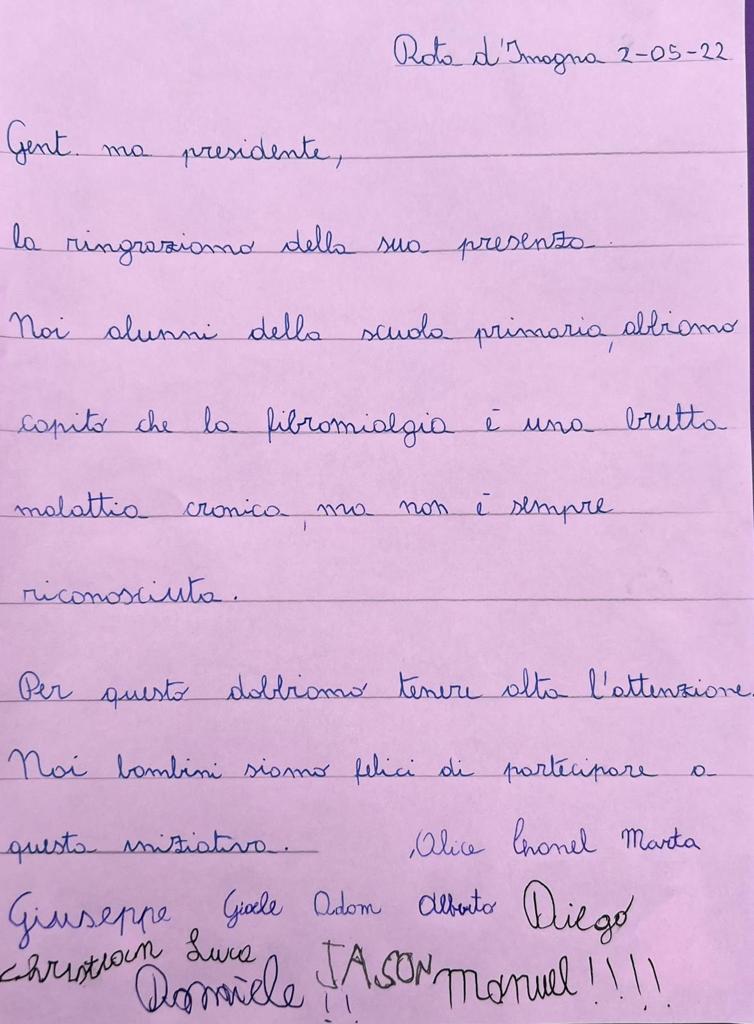 Rota d'Imagna 2-05-22
Gent. ma presidente,
la ringraziamo della sua presenza.
Noi alunni della scuola primaria, abbiamo
capito che la fibromialgia è una brutta
malattia cronica, ma non è sempre
riconosciuta.
Per questo dobbiamo tenere alta l'attenzione.
Noi bambini siamo felici di partecipare a
questa iniziativa. Alice Marta
Giuseppe Gioele Adam Alberto Diego
Christian Luca
Daniele !! JASON Manuel!!!!